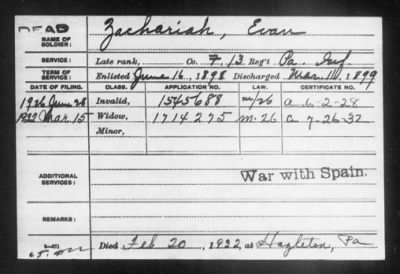 DEAD
NAME OF SOLDIER: Zachariah, Evan
SERVICE: Late rank, Co. F, 13 Reg't Pa. Inf.
TERM OF SERVICE: Enlisted June 16, 1898 Discharged Mar. 11, 1899
DATE OF FILING. CLASS. APPLICATION NO. LAW. CERTIFICATE NO.
1926 June 28 Invalid, 1545688 m/26 a 6-2-28
1932 Mar 15 Widow, 1714275 m-26 C 7-26-32
Minor,
ADDITIONAL SERVICES: War with Spain.
REMARKS:
Died Feb 20, 1932, at Hazleton, Pa